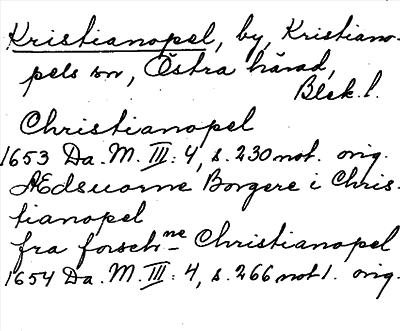 Kristianopel, by, Kristiano-
pels sn, Östra härad,
Blek. l.
Christianopel
1653 Da. M. III: 4, s. 230 not. orig.
Ædsuorne Borgere i Chris-
tianopel
fra forschne Christianopel
1654 Da. M. III: 4, s. 266 not 1. orig.